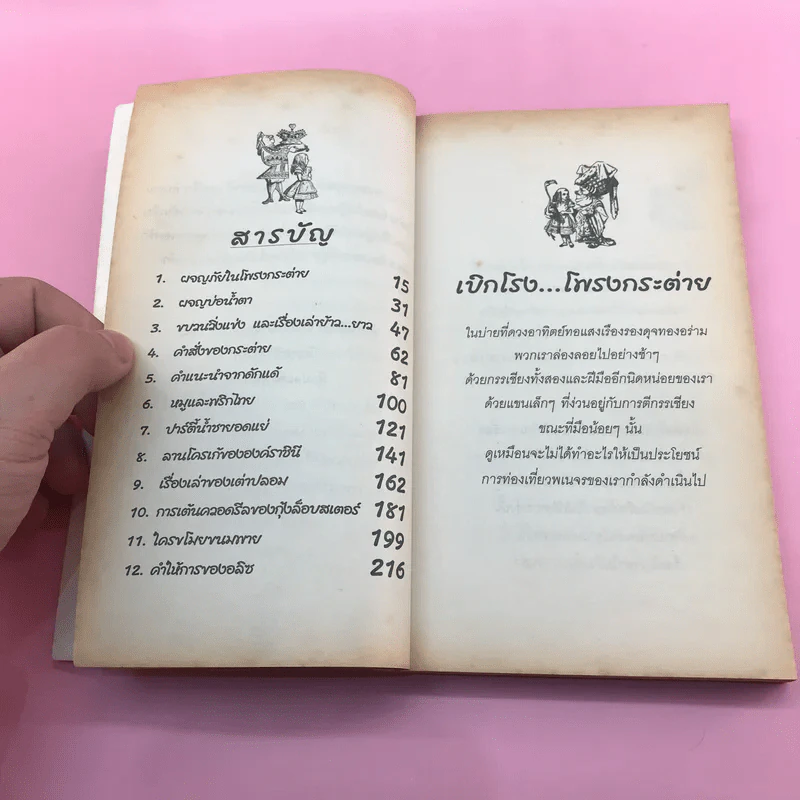 สารบัญ
1. ผจญภัยในโพรงกระต่าย 15
2. ผจญบ่อน้ำตา 31
3. ขบวนวิ่งแข่ง และเรื่องเล่าย้าว...ยาว 47
4. คำสั่งของกระต่าย 62
5. คำแนะนำจากดักแด้ 81
6. หมูและพริกไทย 100
7. ปาร์ตี้น้ำชายอดแย่ 121
8. ลานโครเกห์ขององค์ราชินี 141
9. เรื่องเล่าของเต่าปลอม 162
10. การเต้นควอดรีลของกุ้งล็อบสเตอร์ 181
11. ใครขโมยขนมพาย 199
12. คำให้การของอลิซ 216
เบิกโรง...โพรงกระต่าย
ในบ่ายที่ดวงอาทิตย์ทอแสงเรืองรองดุจทองอร่าม
พวกเราล่องลอยไปอย่างช้าๆ
ด้วยกรรเชียงทั้งสองและฝีมืออีกนิดหน่อยของเรา
ด้วยแขนเล็กๆ ที่ง่วนอยู่กับการตีกรรเชียง
ขณะที่มือน้อยๆ นั้น
ดูเหมือนจะไม่ได้ทำอะไรให้เป็นประโยชน์
การท่องเที่ยวพเนจรของเรากำลังดำเนินไป